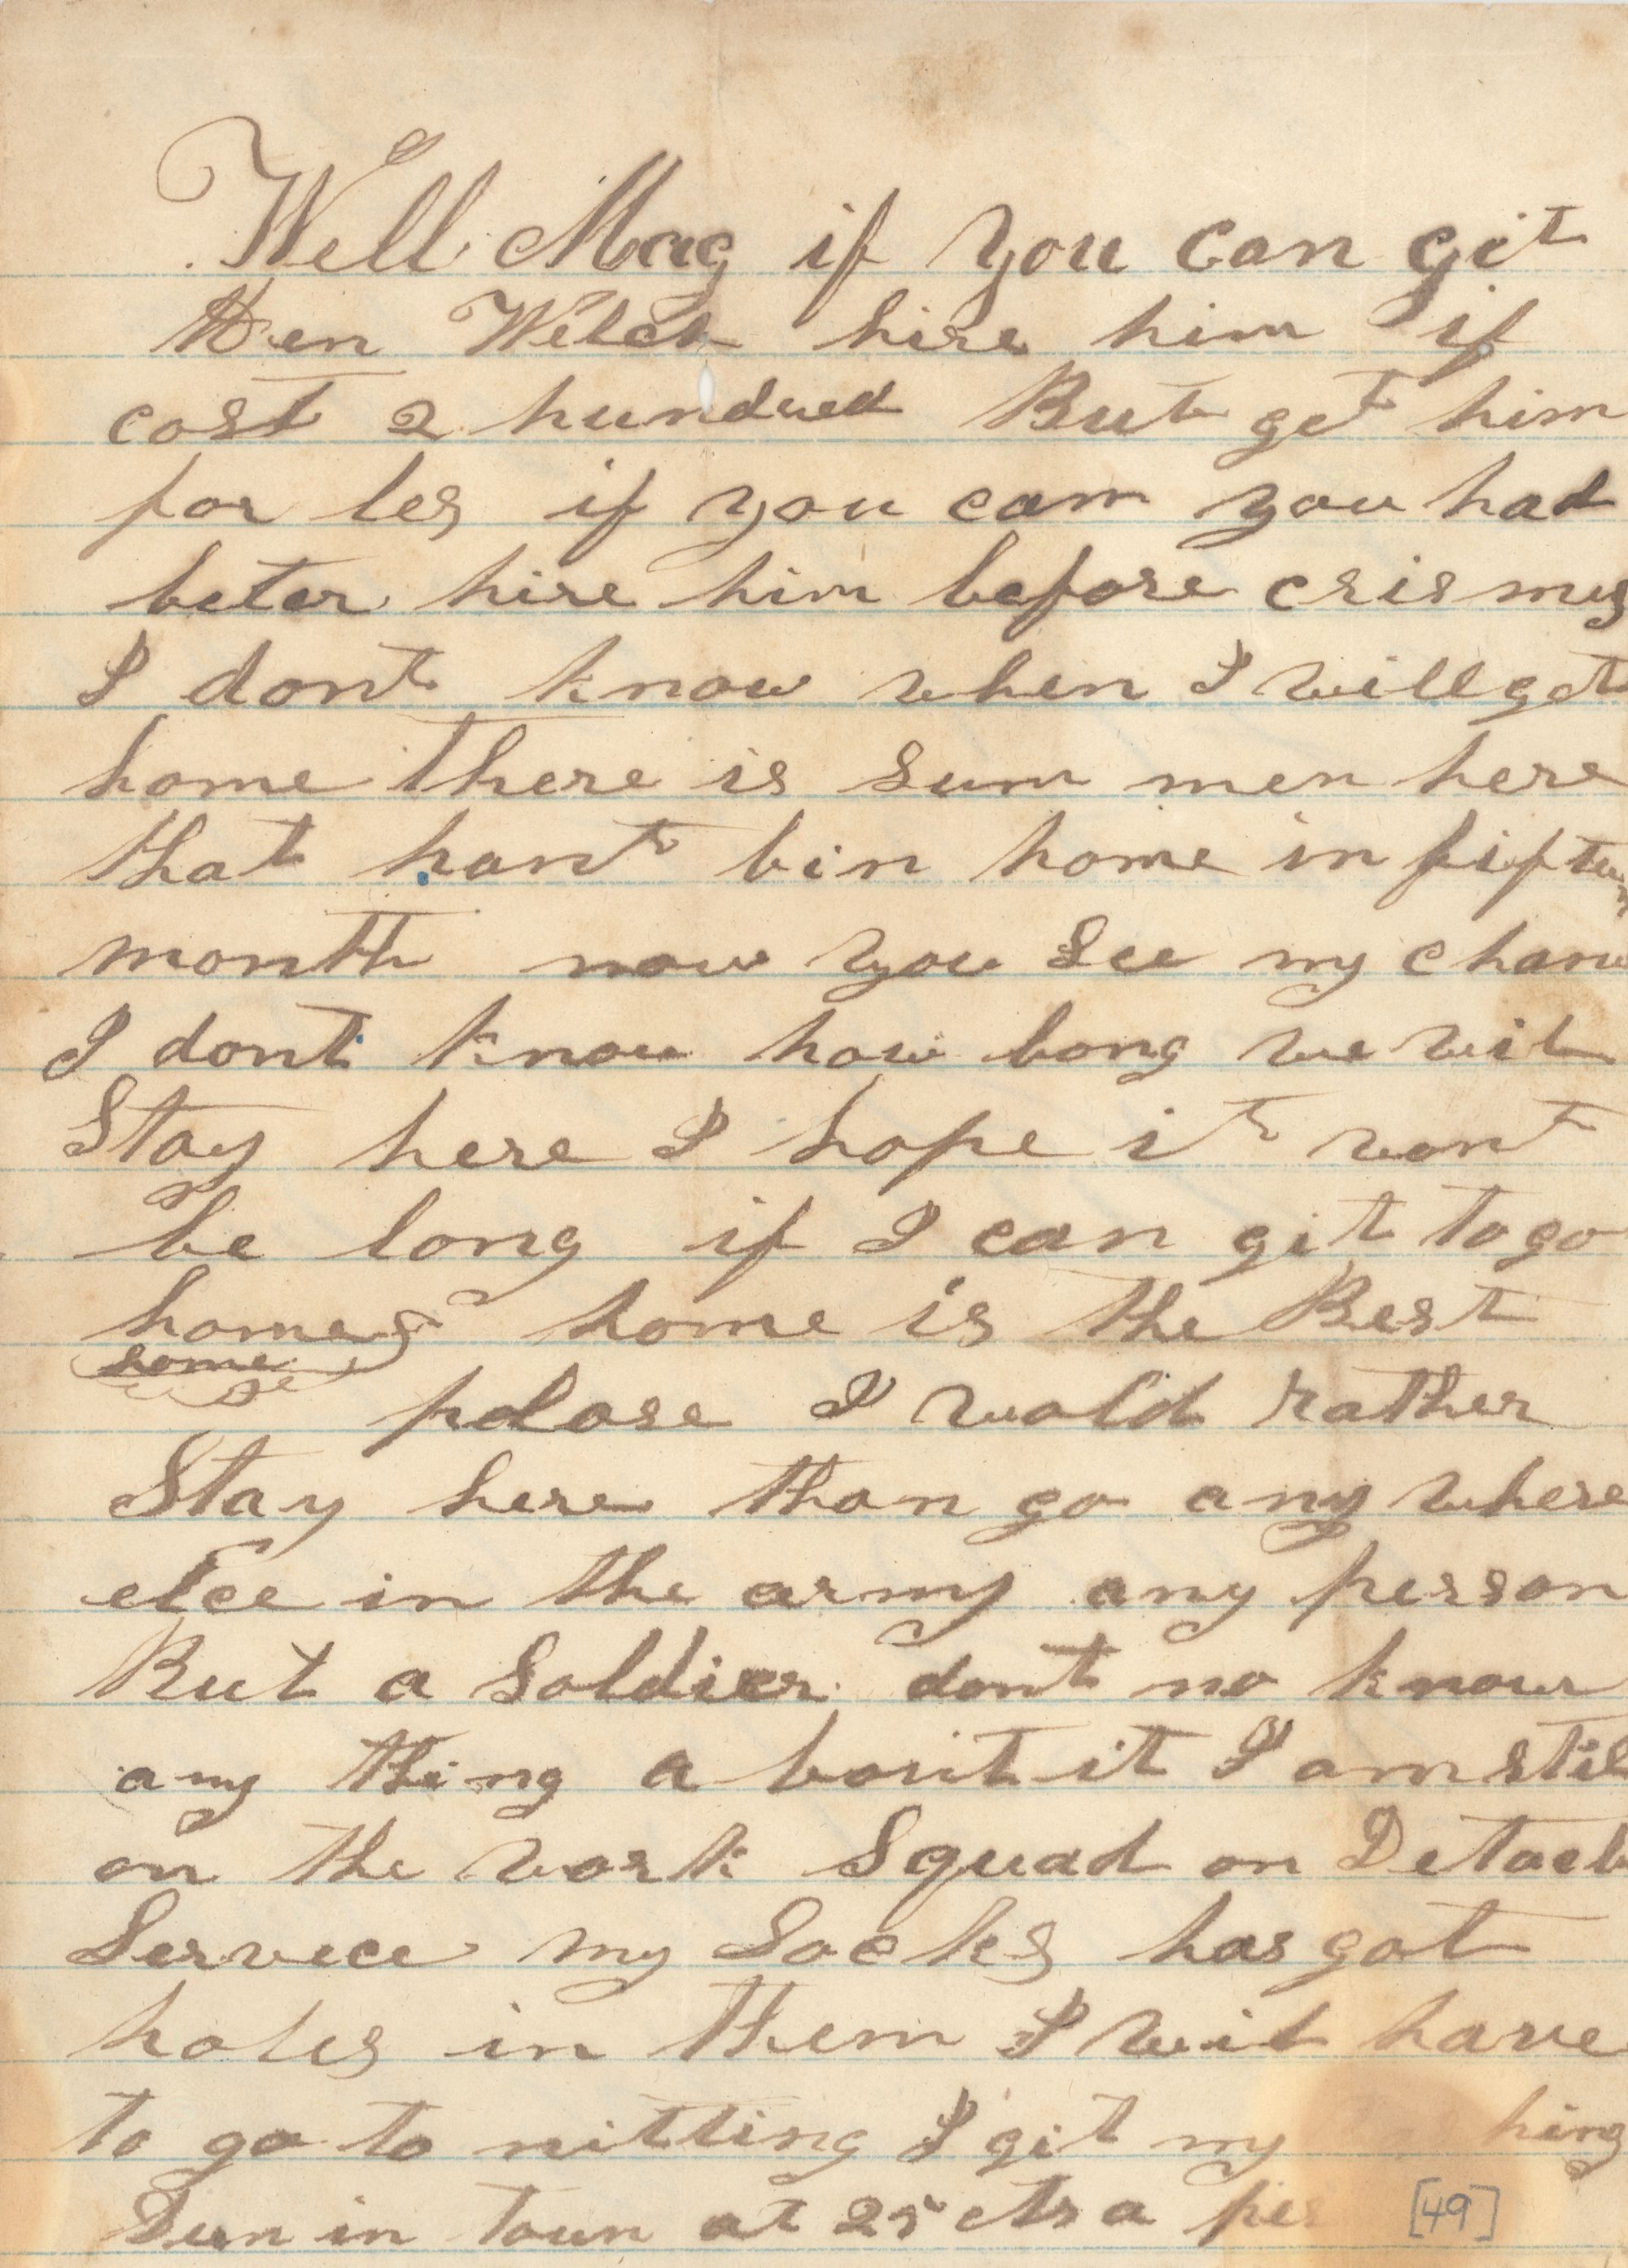 Well Mag if you can git
Hen Welch hire him if
cost 2 hundred But get him
for les if you cam you had
beter hire him before crismus
I dont know when I will get
home there is sum men here
that hant bin home in fifteen
month now you See my chanc
I dont know how long we wil
Stay here I hope it wont
be long if I can git to go
home home is the Best
home
plase I wold rather
Stay here than go any where
elce in the army any person
But a Soldier dont no know
any thing a bout it I am stil
on the work Squad on Detach
Service my Socks has got
holes in them I wil have
to go to nitting I git my hing
Dun in town at 25 cts a
[49]